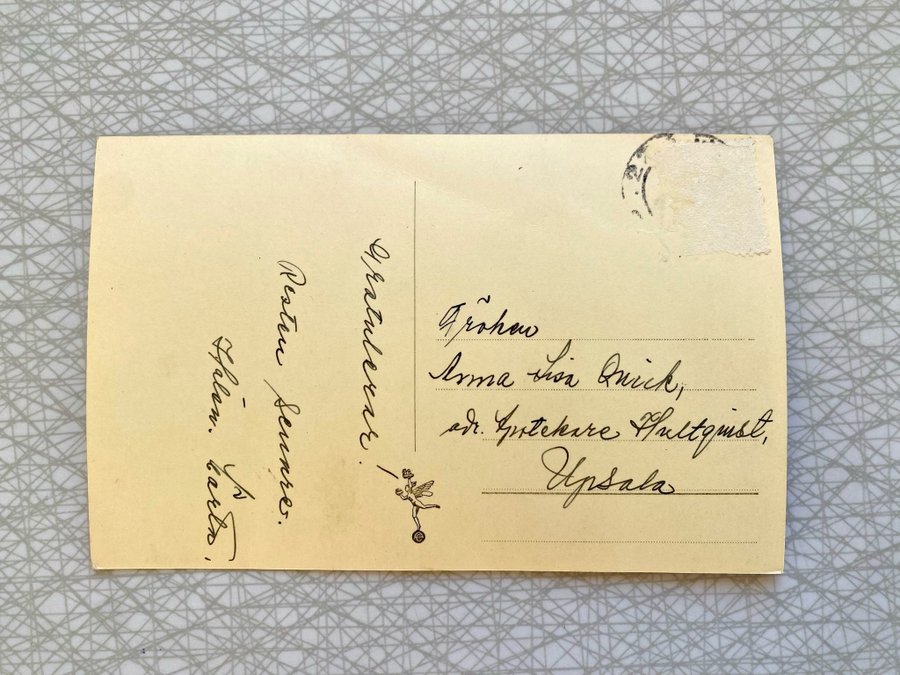 Gratulerar!
Resten senare.
Fröken
Anna Lisa Quick,
adr. Apotekare Hultquist,
Upsala